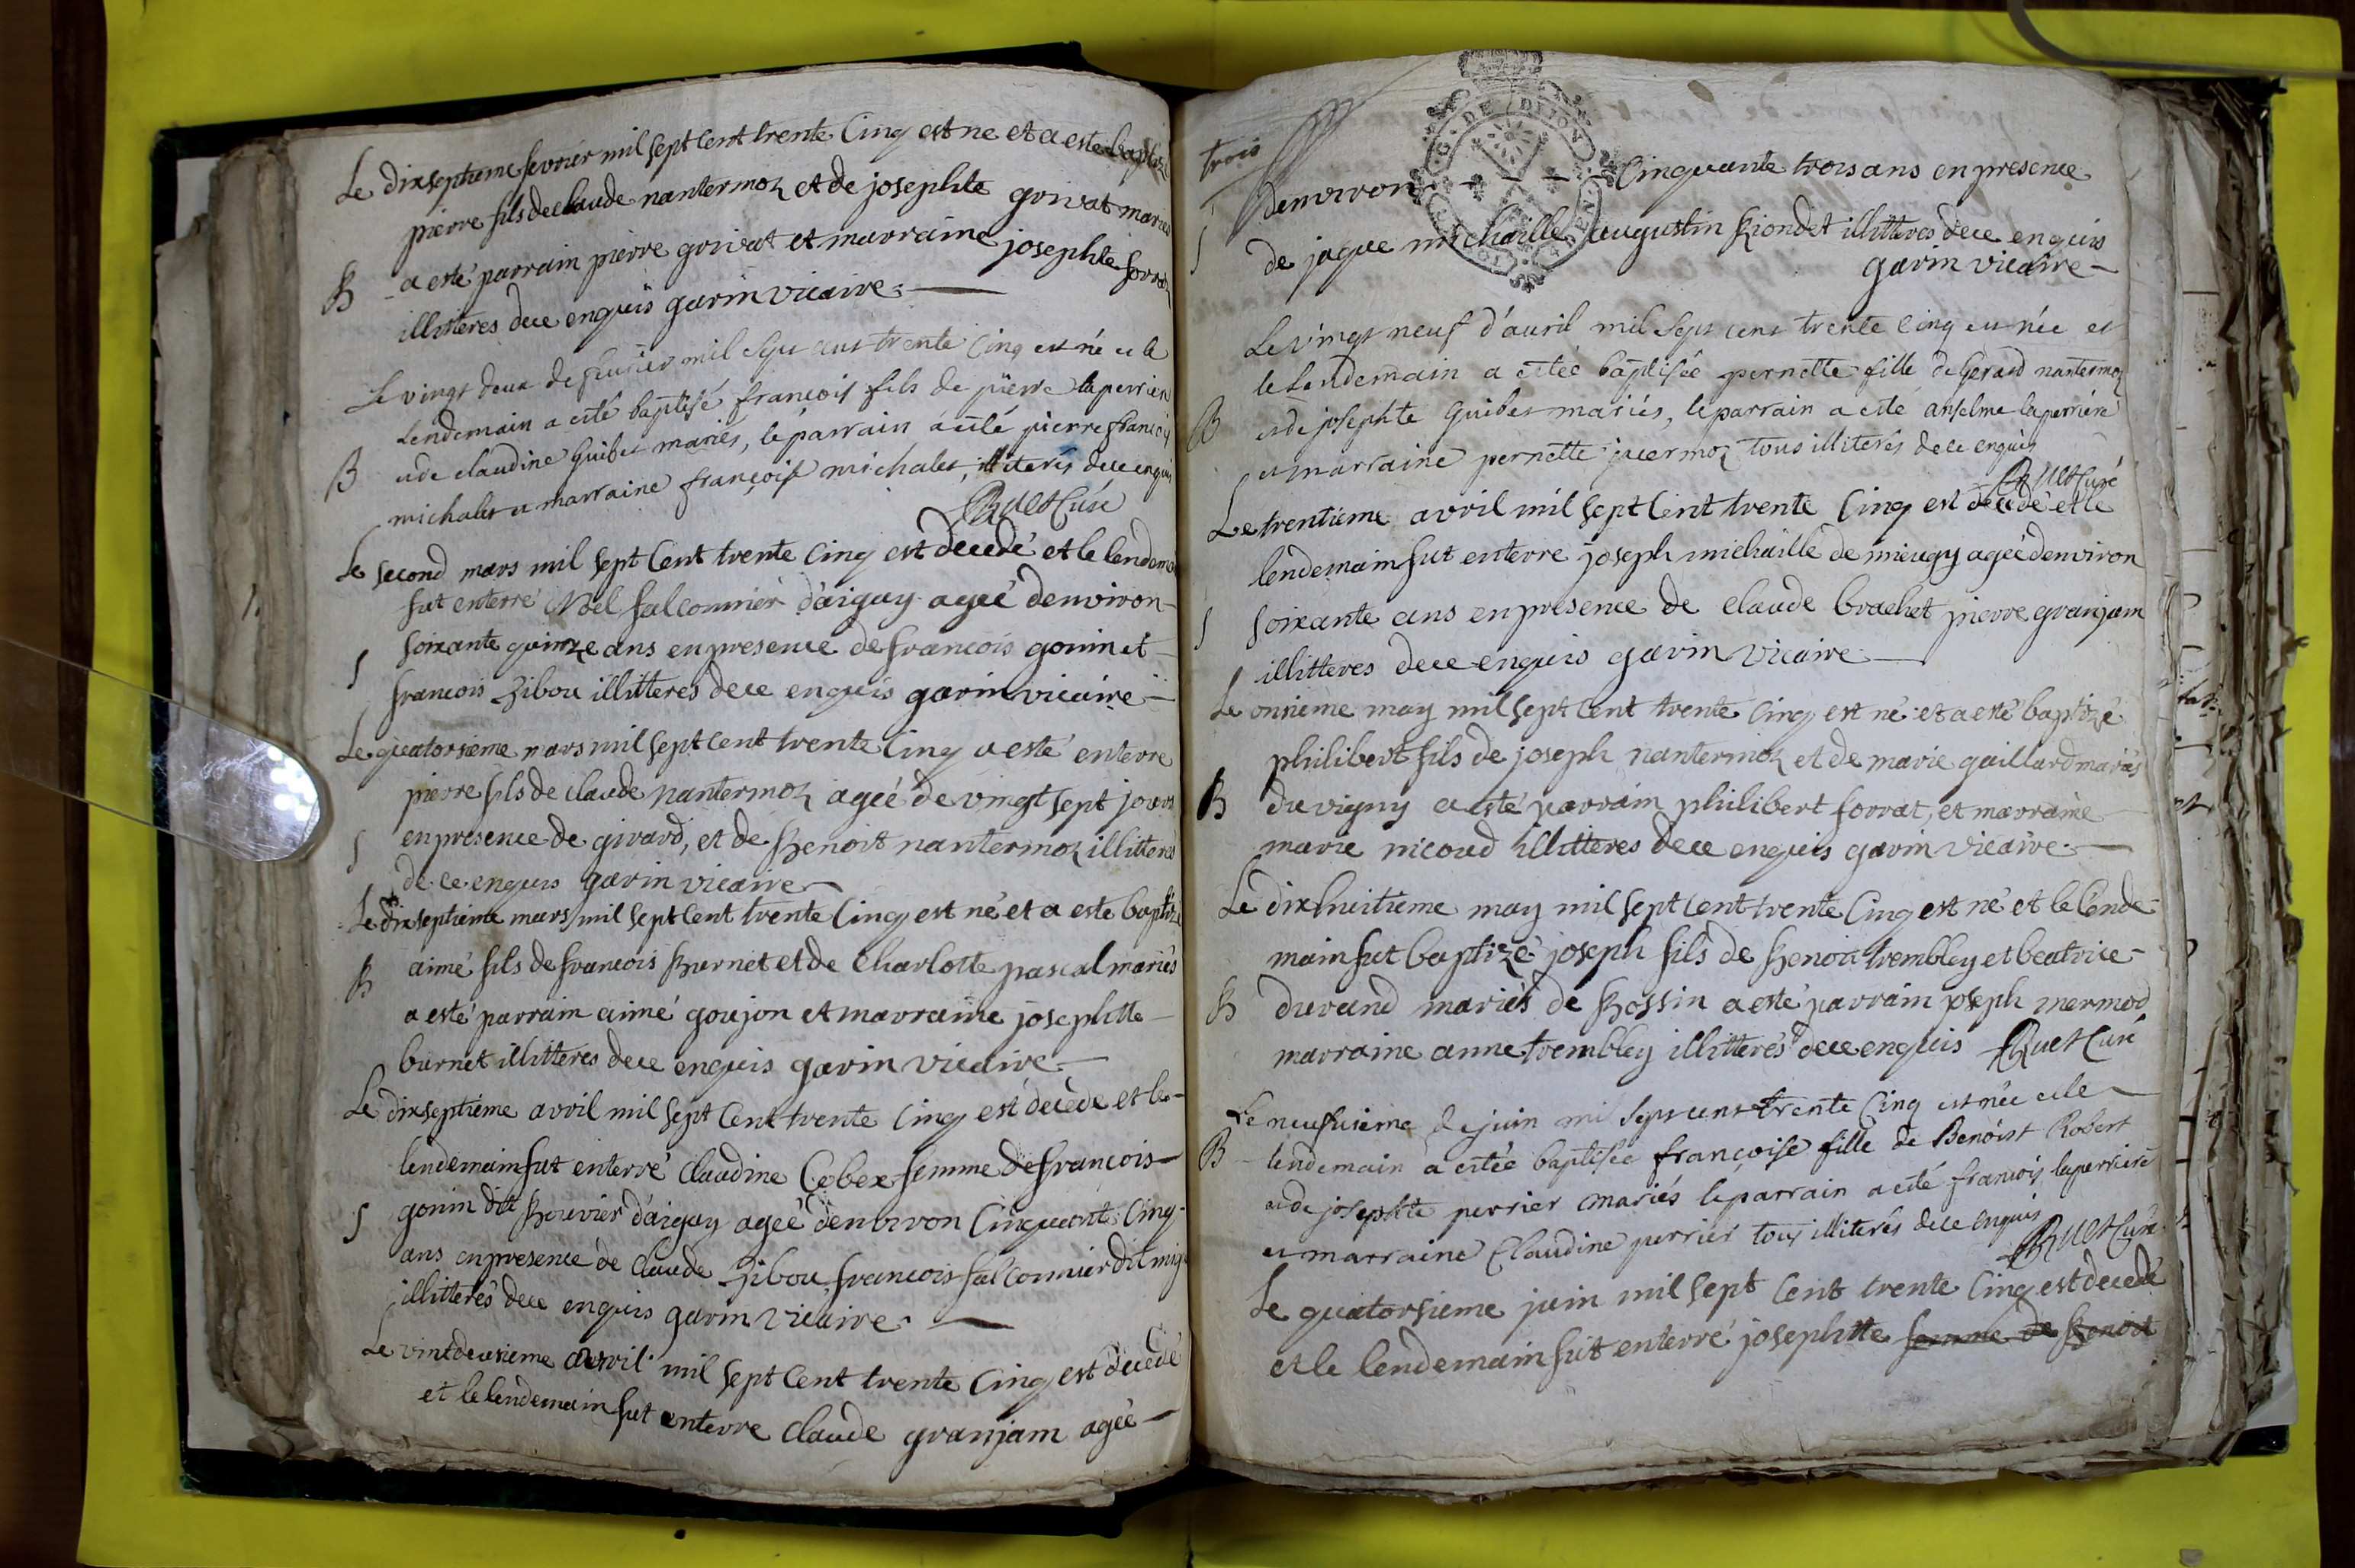 Le dixseptieme fevrier mil sept cent trente cinq est ne et a este baptizé
pierre fils de claude nantermoz et de josephte grivat mariés
B a esté parrain pierre grivat et marraine josephte forrat
illitteres de ce enquis garin vicaire
Le vingt deux de feuurier mil sept cens trente cinq est né et le
Lendemain a esté baptisé françois fils de pierre laperriere
B et de claudine Guibet mariés, le parrain a esté pierre françois
michalet et marraine françoise michalet, illiterés de ce enquis
Ruet Curé
Le second mars mil sept cent trente cinq est decedé et le lendemain
fut enterré Noel falconnier d'aigay ageé denviron
S soixante quinze ans en presence de francois gonin et
francois Zibou illitteres de ce enquis garin vicaire
Le quatorsieme mars mil sept cent trente cinq a esté enterre
pierre fils de claude nantermoz ageé de vingt sept jours
S en presence de girard, et de Benoit nantermoz illitterés
de ce enquis garin vicaire
Le dixseptieme mars mil sept cent trente cinq est né et a este baptizé
B aimé fils de francois Burnet et de Charlotte pascal mariés
a esté parrain aimé goujon et marraine josephtte
burnet illitteres de ce enquis garin vicaire
Le dixseptieme avril mil sept Cent trente cinq est décèdé et le
lendemain fut enterré Claudine Cobex femme de francois
S gonin dit Bouvier d'aigay ageé denviron Cinquante Cinq
ans en presence de Claude Zibou, francois falconnier dit
illitterés de ce enquis garin vicaire
Le vintdeusieme avril mil sept Cent trente Cinq est décèdé
et le lendemain fut enterre Claude granjam ageé
trois
denviron Cinquante trois ans en presence
S de jaque michaille augustin Biondet illitteres de ce enquis
garin vicaire
Le vingt neuf d'auril mil sept cens trente cinq est née et
le Lendemain a estée baptisée pernette fille de Gerard nantermoz
B et de josephte Guibet mariés, le parrain a esté anselme laperriere
et marraine pernette jacermoz tous illiterés de ce enquis
Ruet Curé
Le trentieme avril mil sept Cent trente Cinq est decedé et le
lendemain fut enterre joseph michaille de mieugy ageé denviron
S soixante ans en presence de claude brachet pierre granjam
illitteres de ce enquis garin vicaire
Le onsieme may mil sept cent trente Cinq est né et a esté baptizé
philibert fils de joseph nantermoz et de marie gaillard mariés
B du vigny a esté parrain philibert forrat, et marraine
marie nicoud illitteres de ce enquis garin vicaire
Le dixhuitieme may mil sept cent trente Cinq est né et le lende-
main fut baptizé joseph fils de Benoit trembley et beatrice
B durand mariés de Bossin a esté parrain joseph mermod
marraine anne trembley illitterés de ce enquis Ruet Curé
Le neufuieme de juin mil sept cens trente Cinq est née et le
B lendemain a estée baptisée françoise fille de Benoist Robert
et de josephte perrier mariés le parrain a esté francois laperriere
et marraine Claudine perrier tous illiterés de ce enquis
Ruet Curé
Le quatorsieme juin mil sept Cent trente Cinq est decedé
et le lendemain fut enterré josephtte femme de Benoit